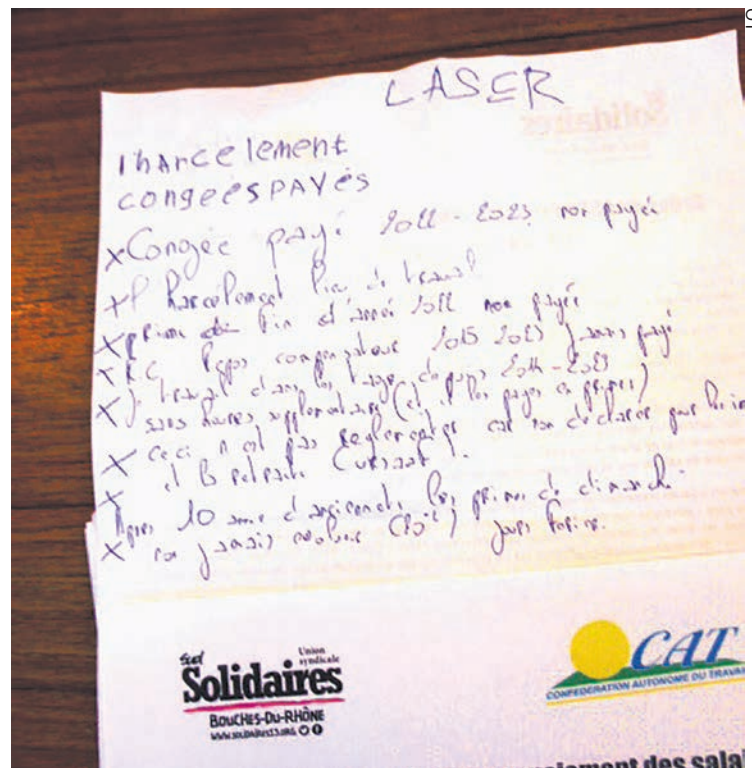 LASER
Solidaires
l'harcèlement
congéés PAYés
x Congée payé 2022 - 2023 non payée
x l'harcèlement lieu de travail
x prime de fin d'année 2022 non payée
x R.C. Repos compensateur 2015 2023 jamais payé
x travail dans les 2014 - 2023
sans heures supplémentaires (et il les payer en primes)
x ceci n'est pas réglementée car non déclarer par
x et la retraite
Après 10 année d'ancienneté les primes de dimanche
x jamais jours
Sud
Union
syndicale
Solidaires
BOUCHES-DU-RHÔNE
www.solidaires13.org
CAT
CONFEDERATION AUTONOME DU TRAVAI
des salai